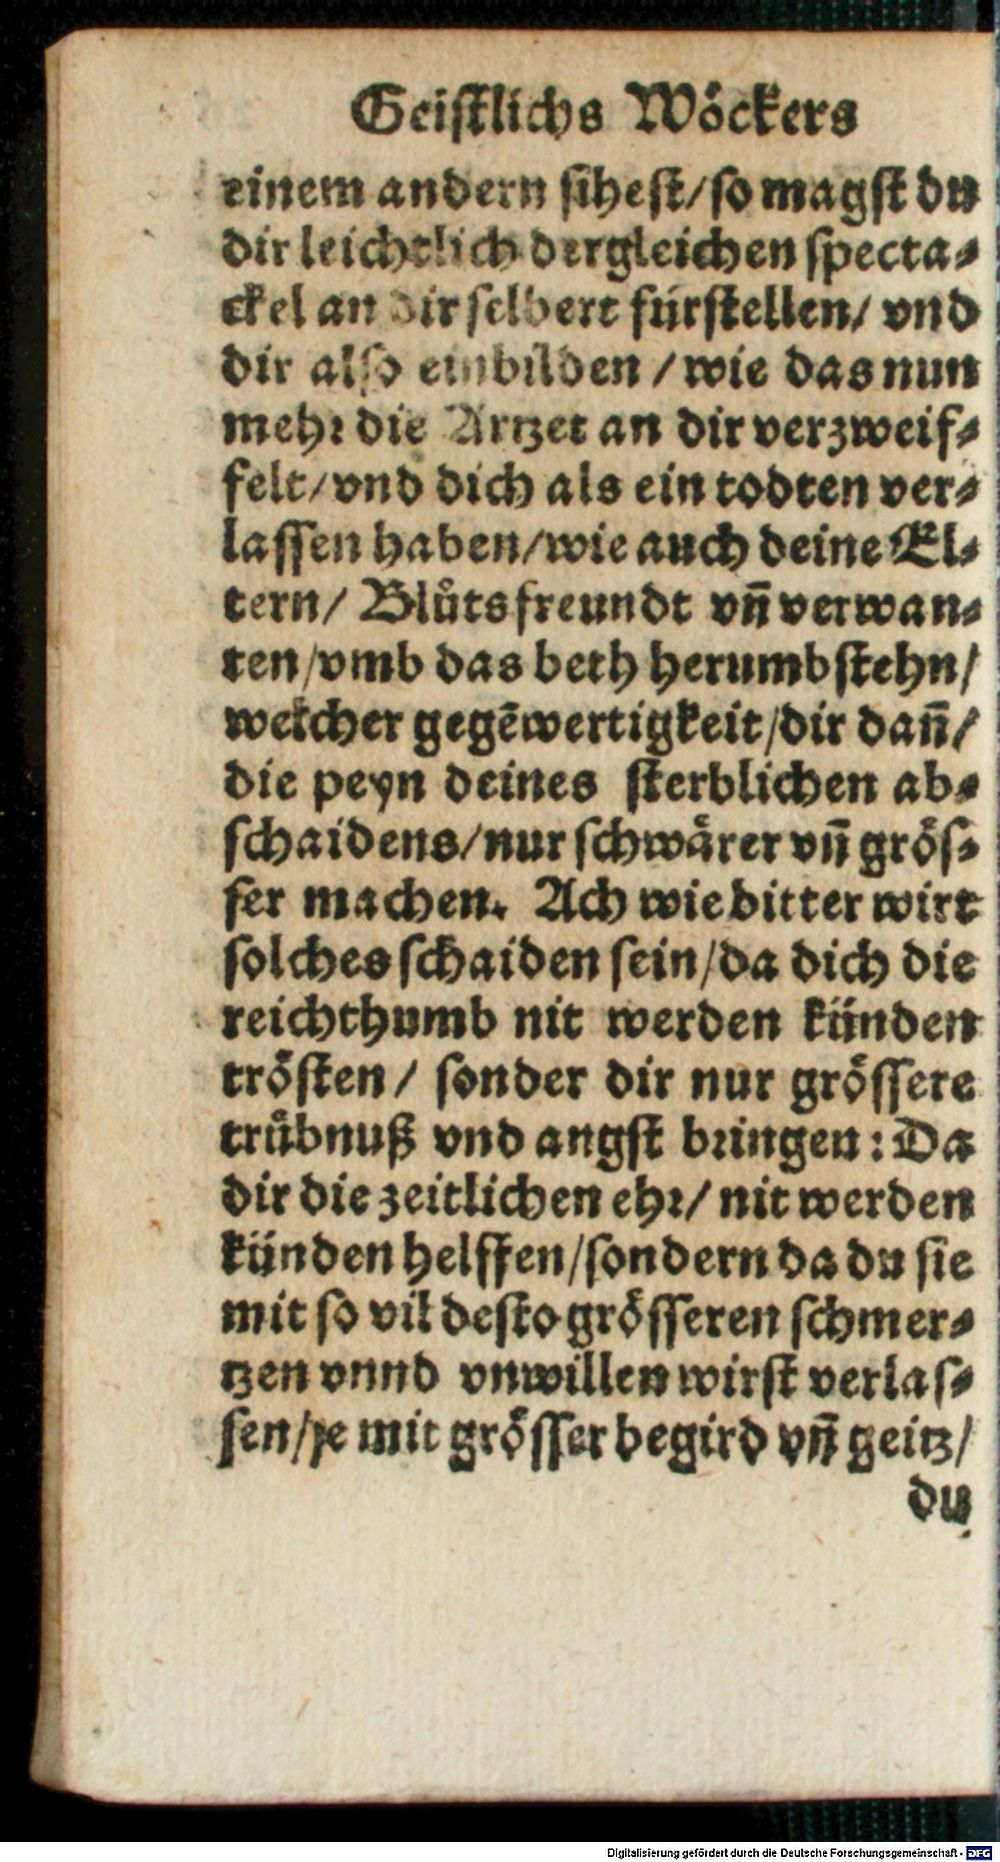 Geistlichs Wöckers
einem andern sihest/so magst du
dir leichtlich dergleichen specta⸗
ckel an dir selbert fürstellen/ vnd
dir also einbilden / wie das nun
mehr die Artzet an dir verzweif⸗
felt/vnd dich als ein todten ver⸗
lassen haben/wie auch deine El⸗
tern/ Blůtsfreundt vñ verwan⸗
ten/vmb das beth herumb stehn/
welcher gegẽwertigkeit/dir dañ/
die peyn deines sterblichen ab⸗
schaidens/nur schwärer vñ grös⸗
ser machen. Ach wie bitter wirt
solches schaiden sein/da dich die
reichthumb nit werden künden
trösten / sonder dir nur grössere
trübnuß vnd angst bringen: Da
dir die zeitlichen ehr/ nit werden
künden helffen/sondern da du sie
mit so vil desto grösseren schmer⸗
tzen vnnd vnwillen wirst verlas⸗
sen/je mit grösser begird vñ geitz/
du
Digitalisierung gefördert durch die Deutsche Forschungsgemeinschaft - DFG